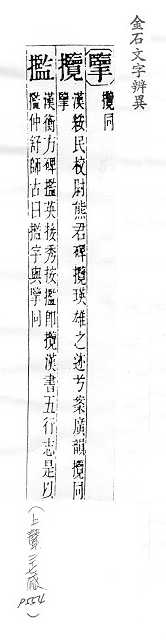 金石文字辨異
擥 攬同
攬 漢綏民校尉熊君碑攬瑛雄之迹兮案廣韻攬同
擥
㩜 漢衡方碑㩜英接秀按㩜即攬漢書五行志是以
㩜仲舒師古曰㩜字與擥同
（上聲二七感
P554）